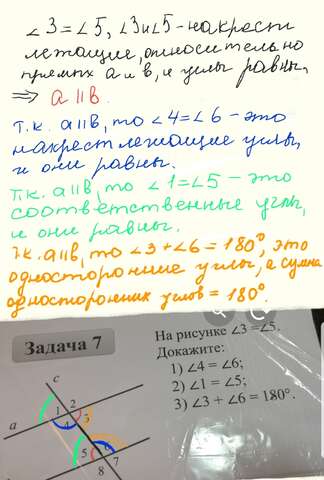 ∠3 = ∠5, ∠3 и ∠5 - накрест
лежащие, относительно
прямых a и b, и углы равны,
⇒ a||b.
Т.к. a||b, то ∠4 = ∠6 - это
накрест лежащие углы,
и они равны.
Т.к. a||b, то ∠1 = ∠5 - это
соответственные углы,
и они равны.
Т.к. a||b, то ∠3 + ∠6 = 180°, это
односторонние углы, а сумма
односторонних углов = 180°.
Задача 7
На рисунке ∠3 = ∠5.
Докажите:
1) ∠4 = ∠6;
2) ∠1 = ∠5;
3) ∠3 + ∠6 = 180°.
c
a
1 2
4 3
5
8 7